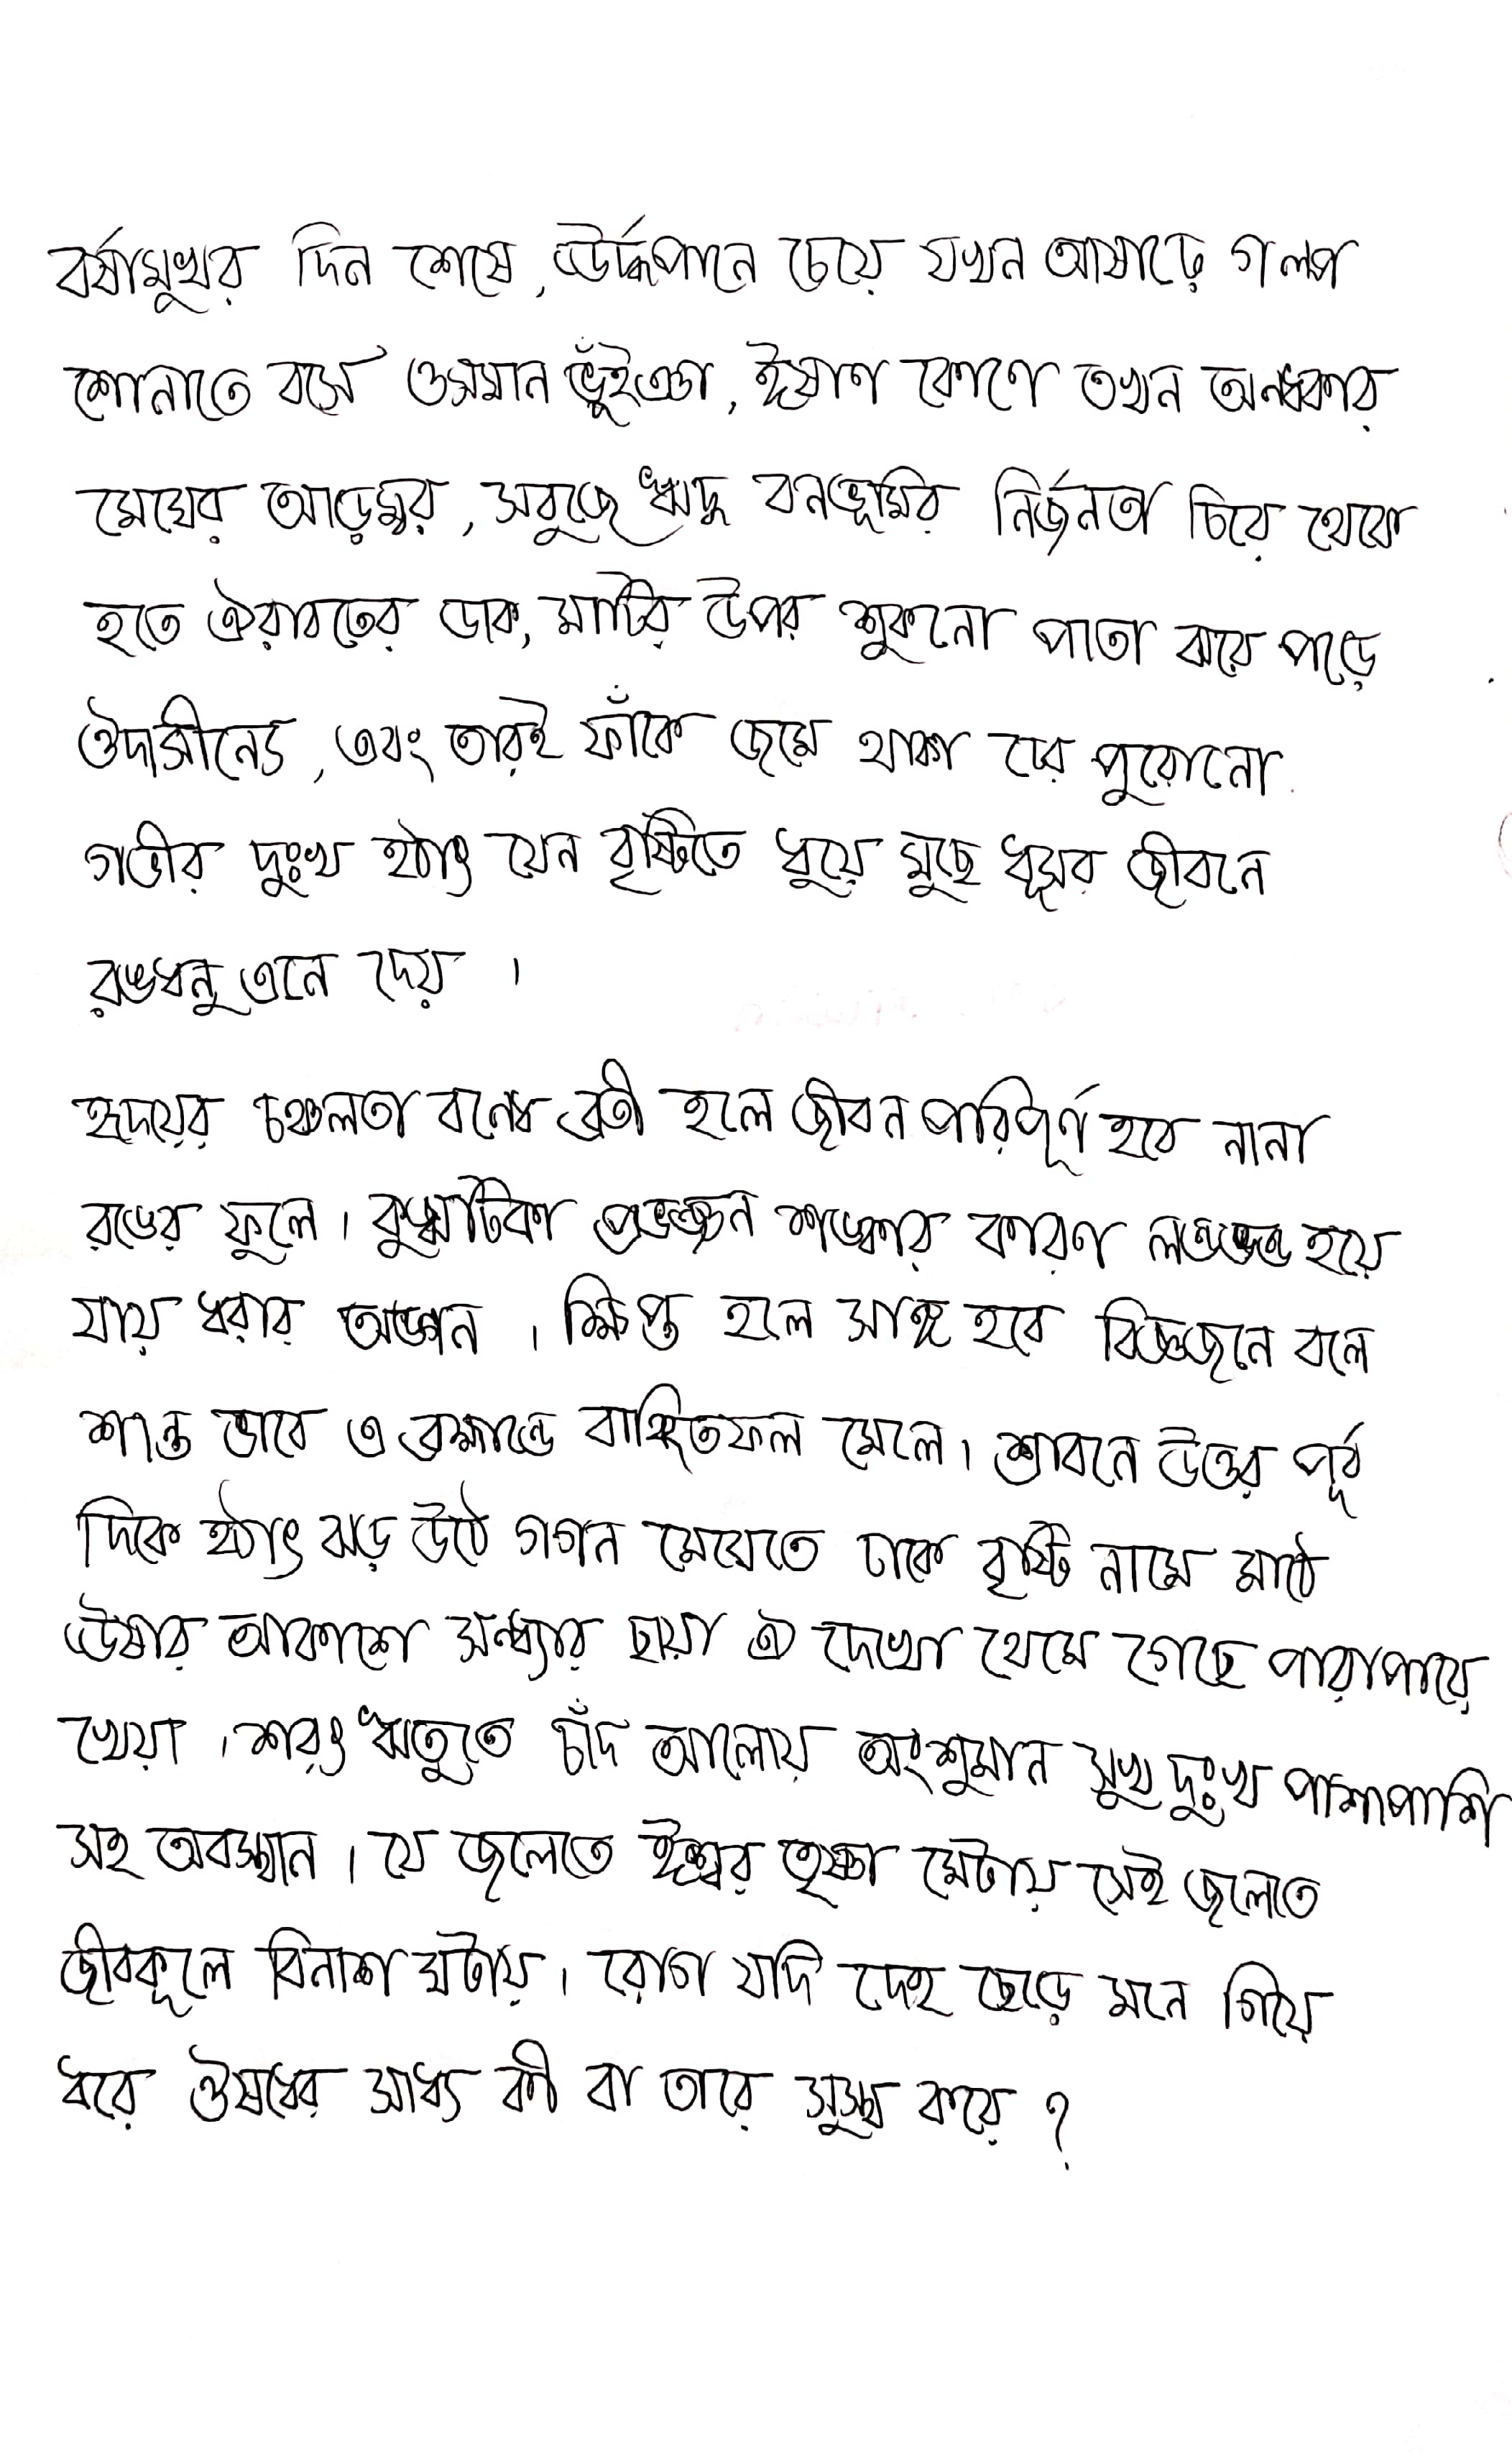 বর্ষামুখর দিন শেষে, ঊর্দ্ধপানে চেয়ে যখন আষাঢ়ে গল্প
শোনাতে বসে ওসমান ভুঁইঞা, ঈষাণ কোণে তখন অন্ধকার
মেঘের আড়ম্বর, সবুজে ঋদ্ধ বনভূমির নির্জনতা চিরে থেকে
হতে ঐরাবতের ডাক, মাটির উপর শুকনো পাতা ঝরে পড়ে
ঔদাসীন্যে, এবং তারই ফাঁকে জমে থাকা ঢের পুরোনো
গভীর দুঃখ হঠাৎ যেন বৃষ্টিতে ধুয়ে মুছে ধূসর জীবনে
রঙধনু এনে দেয় ।
হৃদয়ের চঞ্চলতা বন্ধে ব্রতী হলে জীবন পরিপূর্ণ হবে নানা
রঙের ফুলে। কুজ্ঝটিকা প্রভঞ্জন শঙ্কার কারণ লণ্ডভণ্ড হয়ে
যায় ধরার অঙ্গন । ক্ষিপ্ত হলে সাঙ্গ হবে বিজ্ঞজনে বলে
শান্ত ভাবে এ ব্রহ্মান্ডে বাঞ্ছিতফল মেলে। শ্রাবনে উত্তর পূর্ব
দিকে হঠাৎ ঝড় উঠে গগন মেঘেতে ঢাকে বৃষ্টি নামে মাঠে
ঊষার আকাশে সন্ধ্যার ছায়া ঐ দেখো থেমে গেছে পারাপারে
খেয়া । শরৎ ঋতুতে চাঁদ আলোয় অংশুমান সুখ দুঃখ পাশাপাশি
সহ অবস্থান । যে জলেতে ঈশ্বর তৃষ্ণা মেটায় সেই জলেতে
জীবকূলে বিনাশ ঘটায়। রোগ যদি দেহ ছেড়ে মনে গিয়ে
ধরে ঔষধের সাধ্য কী বা তারে সুস্থ করে ?